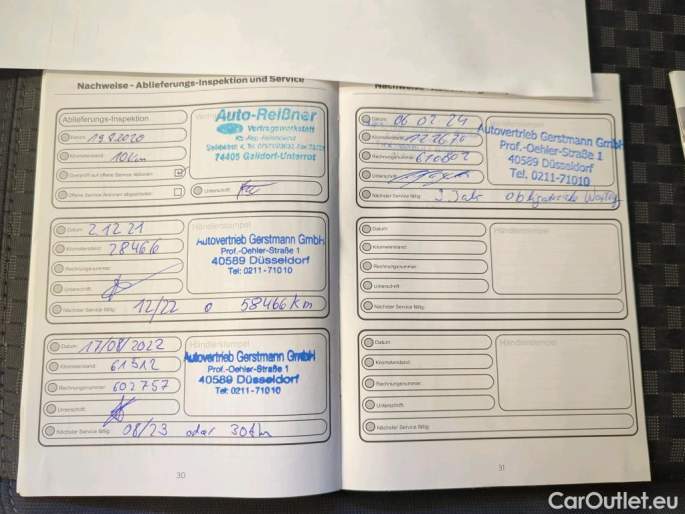 Nachweise - Ablieferungs-Inspektion und Service
Ablieferungs-Inspektion
Datum 19.8.2020
Kilometerstand 10 km
Überprüft auf offene Service-Aktionen
Offene Service-Aktionen abgearbeitet
Unterschrift
Auto-Reißner
Vertragswerkstatt
74405 Gaildorf-Unterrot
Datum 2.12.21
Kilometerstand 28466
Rechnungsnummer
Unterschrift
Nächster Service fällig 12/22 o 58466 km
Händlerstempel
Autovertrieb Gerstmann GmbH
Prof.-Oehler-Straße 1
40589 Düsseldorf
Tel: 0211-71010
Datum 17/08/2022
Kilometerstand 61312
Rechnungsnummer 602757
Unterschrift
Nächster Service fällig 08/23 oder
Händlerstempel
Autovertrieb Gerstmann GmbH
Prof.-Oehler-Straße 1
40589 Düsseldorf
Tel: 0211-71010
30
Datum 06 02 24
Kilometerstand
Rechnungsnummer 610802
Unterschrift
Nächster Service fällig
Autovertrieb Gerstmann GmbH
Prof.-Oehler-Straße 1
40589 Düsseldorf
Tel. 0211-71010
Datum
Kilometerstand
Rechnungsnummer
Unterschrift
Nächster Service fällig
Händlerstempel
Datum
Kilometerstand
Rechnungsnummer
Unterschrift
Nächster Service fällig
Händlerstempel
31
CarOutlet.eu